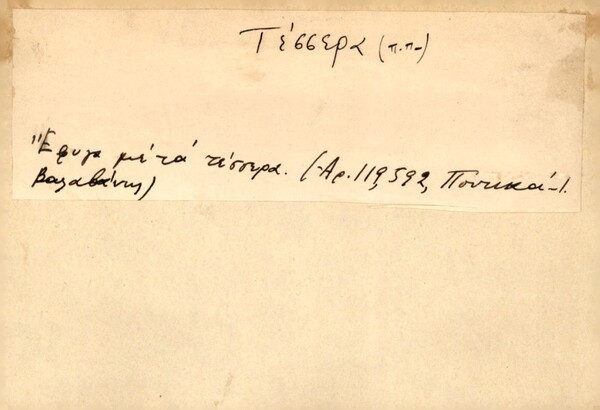 Τέσσερα (π.π-)
"Εφυγα μέ τά τέσσερα. (Αρ. 119, 592, Ποντικά-Ι.
Βαλαβάνης)